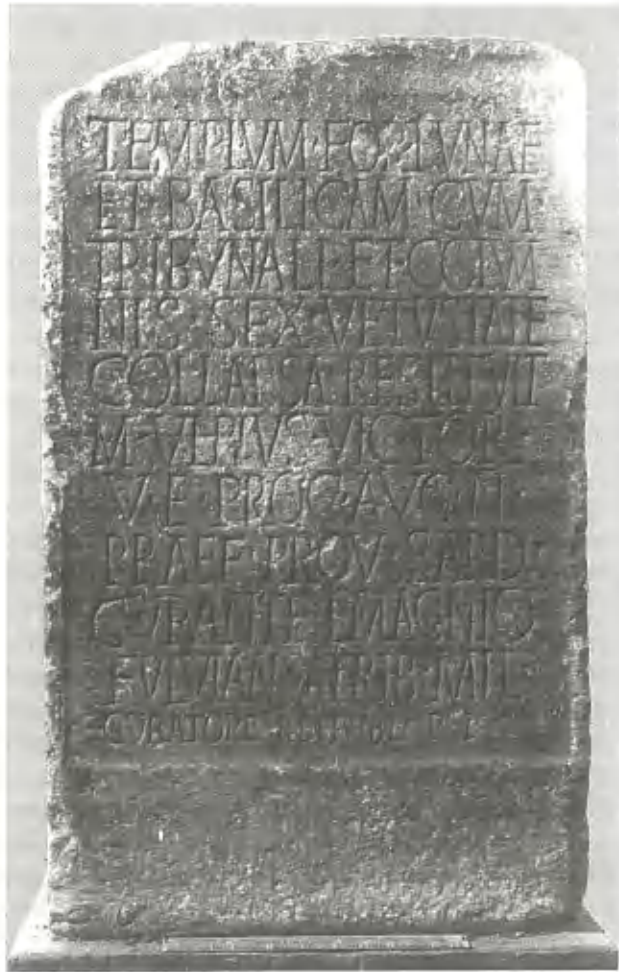 TEMPLVM·FORTVNAE
ET·BASILICAM·CVM·
TRIBVNALI·ET·COLVM
NIS·SEX·VETVSTATE
COLLAPSA·RESTITVIT
M·VLPIVS·VICTOR·
V·E·PROC·AVG·N·
PRAEF·PROV·SARD·
CVRANTE·L·MAGNIO
FVLVIANO·TRIB·MIL·
CVRATORE